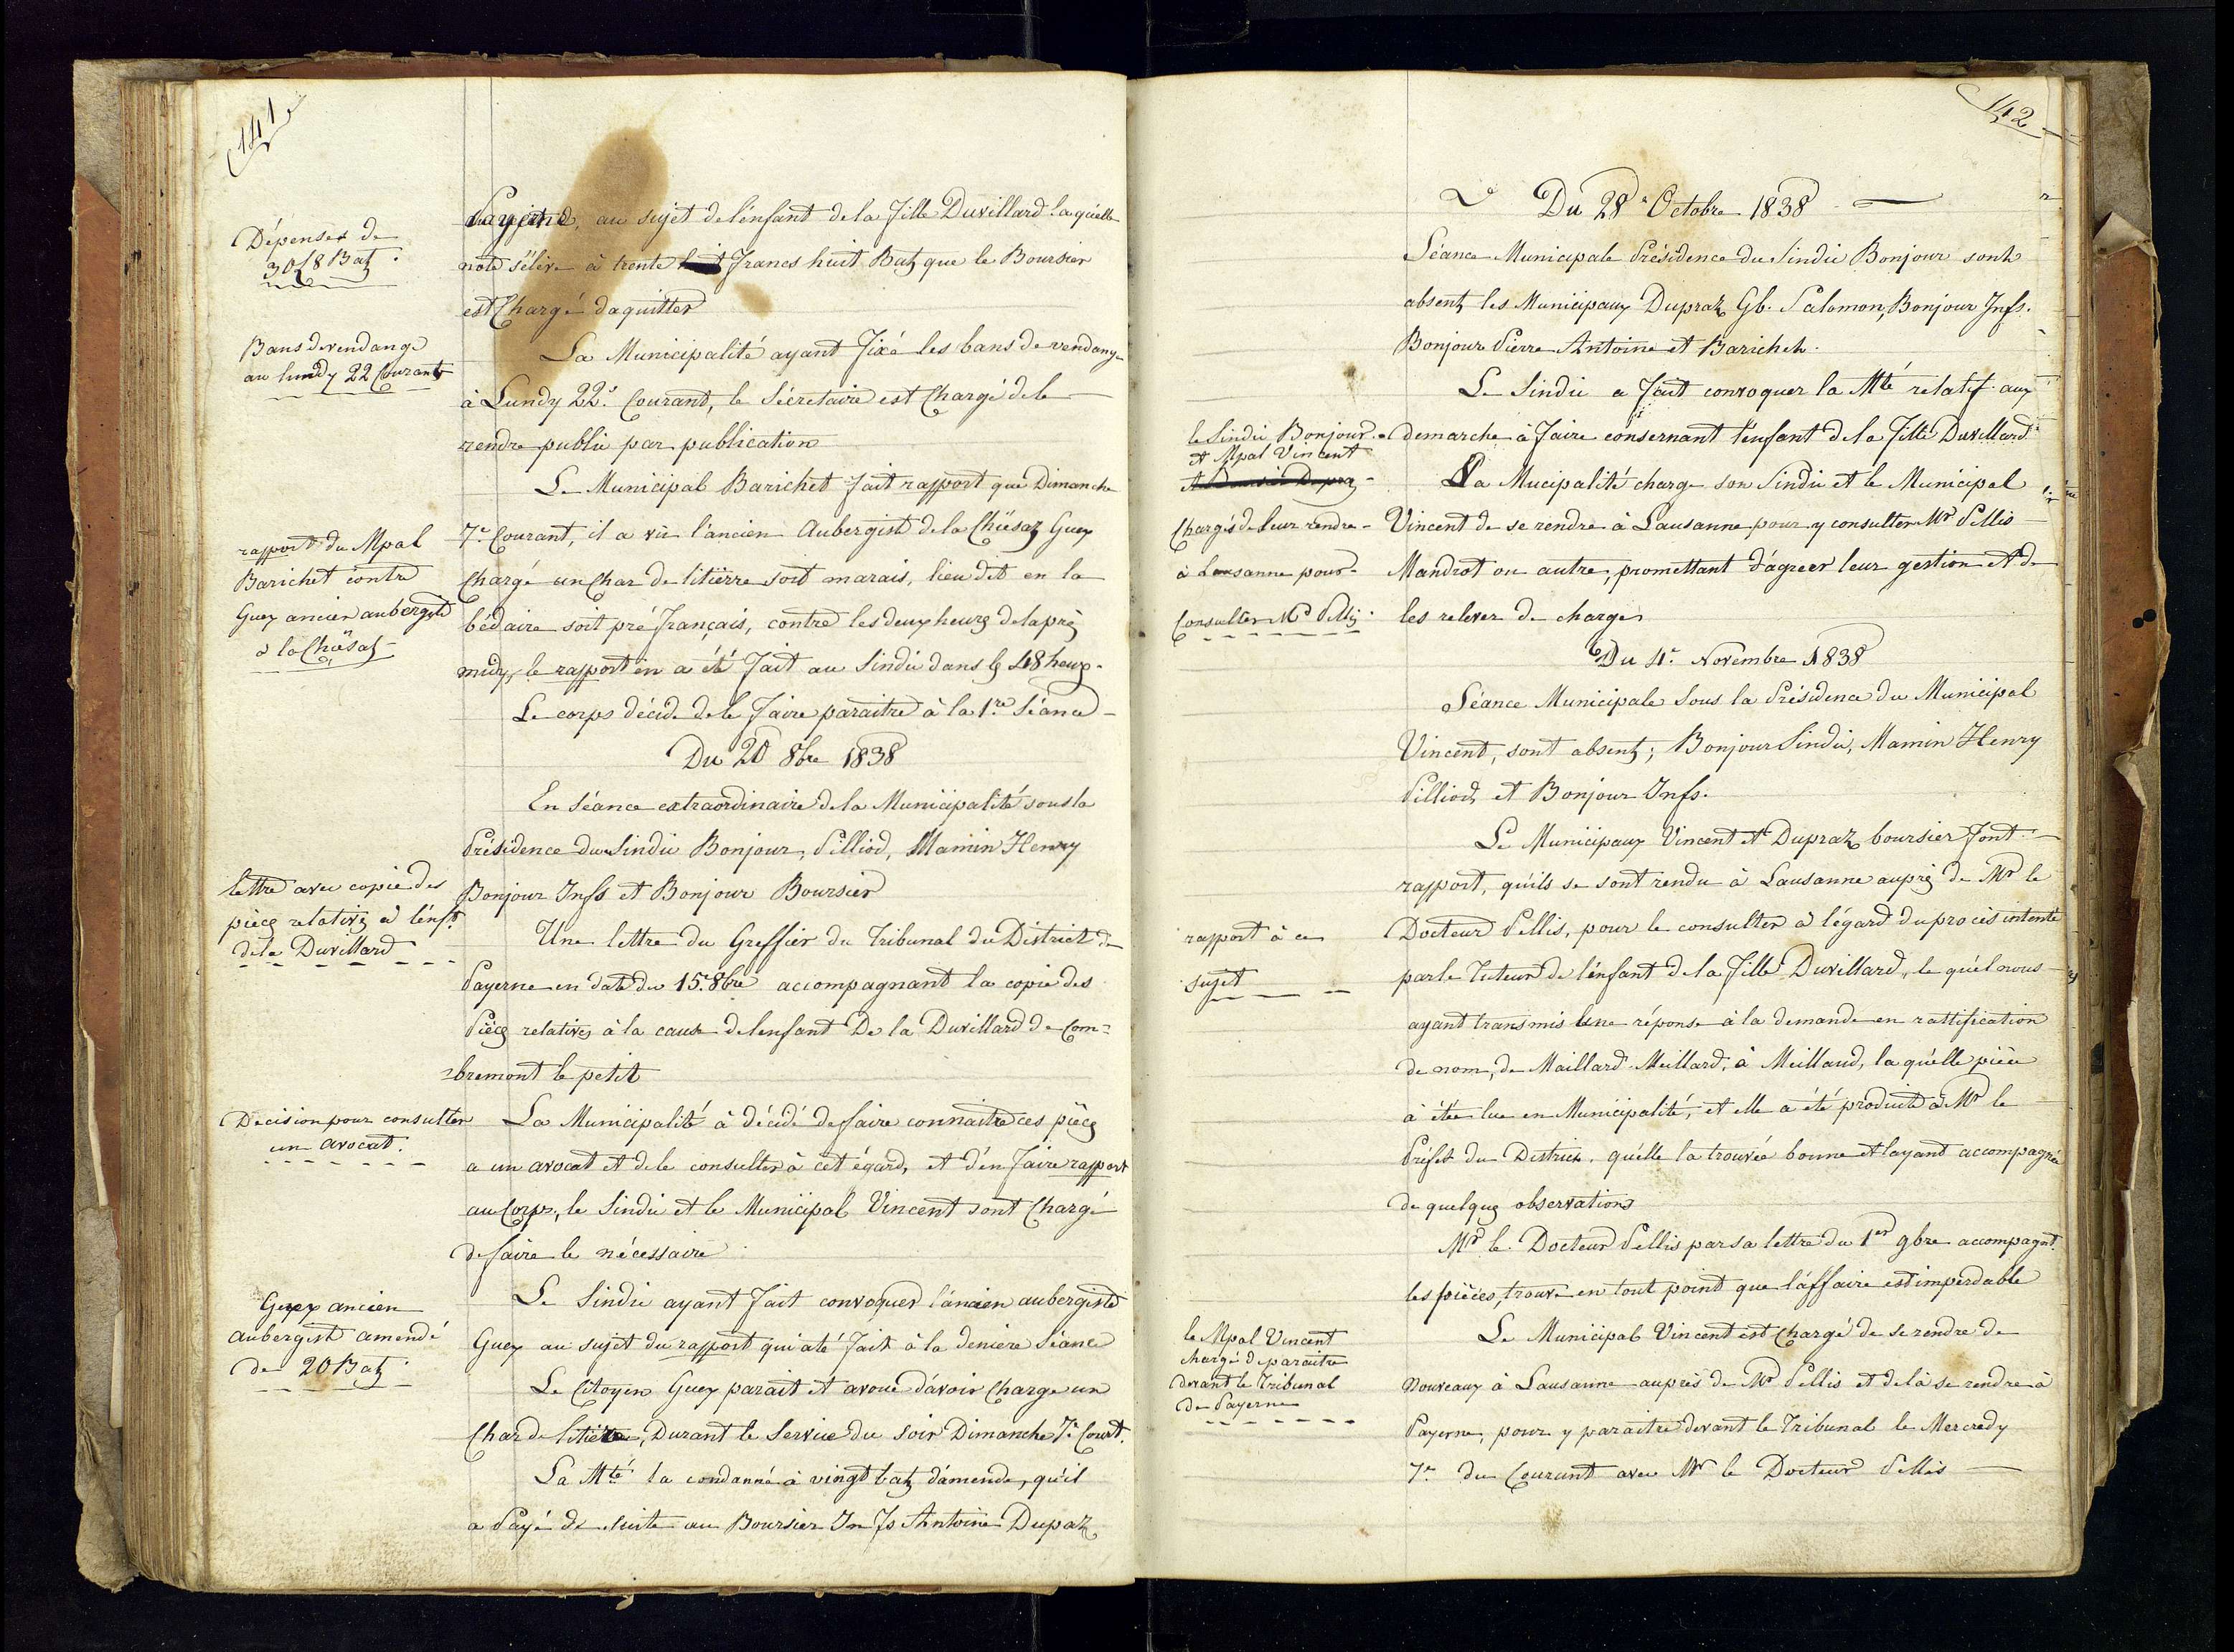 141
Dépenses de
30 f 8 Batz.
Payerne, au sujet de l'énfant de la fille Duvillard laquélle
note s'éléve à trente francs huit Batz que le Boursier
est Chargé daquitter
Bans de vendange
au lundy 22 Courant
La Municipalité ayant fixé les bans de vendange
à Lundy 22e. Courant, le Sécretaire est Chargé de le
rendre public par publication
Le Municipal Barichet fait rapport que Dimanche
rapport du Mpal
Barichet contre
Guex ancien aubergiste
à la Chüsaz
7e. Courant, il a vû l'áncien Aubergiste de la Chüsaz Guex
Chargé un Char de litiérre soit marais, lieu dit en la
bédaire soit pré français, contre les deux heures de laprès
midy, le rapport en a été fait au Sindic dans les 48 heures.
Le corps décide de le faire paraitre à la 1re. Séance
Du 20 8bre 1838
En Séance extraordinaire de la Municipalité sous la
Présidence du Sindic Bonjour, Pilliod, Mamin Henry
Bonjour Jnfs et Bonjour Boursier
lettre avec copie des
pièces relatives à l'énft.
de la Duvillard
Une lettre du Greffier du Tribunal du District de
Payerne en date du 15e. 8bre accompagnant la copie des
Piéces relatives à la cause de lenfant De la Duvillard de Com=
=bremont le petit
Décision pour consulter
un avocat.
La Municipalité à décidé de faire connaitre ces pièces
a un avocat et de le consulter à cet égard, et d'én faire rapport
au Corps, le Sindic et le Municipal Vincent sont Chargé
de faire le nécessaire
Guex ancien
aubergiste amendé
de 20 Batz.
Le Sindic ayant fait convoquer l'áncien aubergiste
Guex au sujet du rapport qui a été fait à la deniere Séance
Le Citoyen Guex parait et avoue d'ávoir Charge un
Char de litiére, Durant le Service du soir Dimanche 7e. Court.
La Mté. la condanné à vingt batz d'ámende, qu'il
a Payé de suite au Boursier Jn Fs Antoine Dupaz
142
Du 28e Octobre 1838
Séance Municipale Présidence du Sindic Bonjour sont
absent, les Municipaux Dupraz Gb. Salomon, Bonjour Jnfs.
Bonjour Pierre Antoine et Barichet.
Le Sindic a fait convoquer la Mté relatif aux
demarche à faire consernant l'énfant de la fille Duvillard
le Sindic Bonjour
et Mpal Vincent
Chargés de leur rendre
à Lausanne pour
Consulter Mr Pellis.
La Mucipalité charge son Sindic et le Municipal
Vincent de se rendre à Lausanne pour y consulter Mr Pellis
Mandrot ou autre, promettant d'ágreer leur gestion et de
les relever de charges
Du 4e. Novembre 1838
Séance Municipale Sous la Présidence du Municipal
Vincent, sont absent; Bonjour Sindic, Mamin Henry
Pilliod, et Bonjour Jnfs.
Le Municipaux Vincent et Dupraz boursier font
rapport, qu'ils se sont rendu à Lausanne auprès de Mr le
rapport à ce
sujet
Docteur Pellis, pour le consulter à l'égard du procès intenté
par le Tuteur de l'énfant de la fille Duvillard, le quél nous
ayant transmis une réponse à la demande en rattification
de nom, de Maillard Meillard, à Meilland, la quélle pièce
à étée lue en Municipalité, et elle a été produite à Mr le
Préfet du District. qu'élle la trouvée bonne et layant accompagnée
de quelques observations
Mr le Docteur Pellis par sa lettre du 1er 9bre accompagnt.
les pièces, trouve en tout point que l'áffaire est imperdable
le Mpal Vincent
chargé de paraitre
devant le Tribunal
de Payerne
Le Municipal Vincent est Chargé de se rendre de
nouveaux à Lausanne auprès de Mr Pellis et de là se rendre à
Payerne, pour y paraitre devant le Tribunal le Mercredy
7e du Courant avec Mr le Docteur Pellis